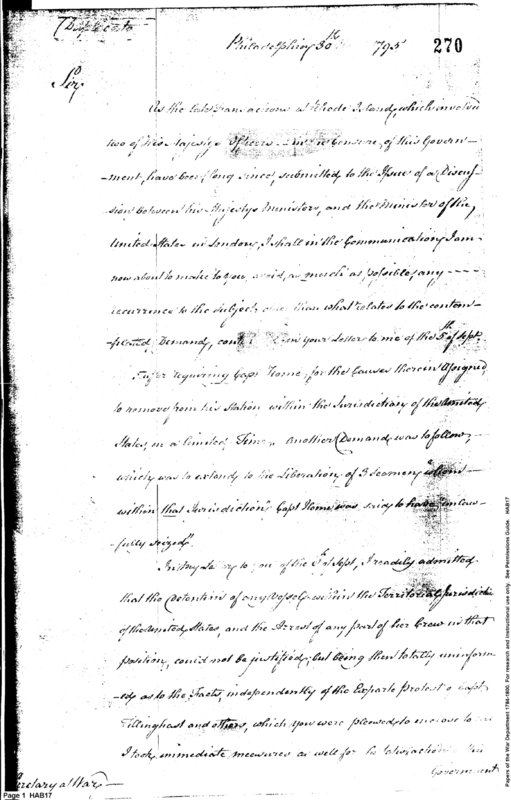 (Duplicate
Philadelphia 30th 1795
270
Sir,
As the late Transactions at Rhode Island, which involved
two of his Majesty's Officers in Censure, of this Govern-
-ment, have been, long since, submitted to the Issue of a Discus-
-sion between his Majesty's Ministers, and the Minister of the
United States in London, I shall in the Communication I am
now about to make to you, avoid, as much as possible, any ----
recurrence to the subject, than what relates to the contem-
-plated Demand, in your Letter to me of the 5th of Sept.
After requiring Capt Home, for the Causes therein assigned,
to remove from his Station within the Jurisdiction of the United
States, in a limited Time, "another Demand was to follow,
which was to extend to the Liberation of 3 Seamen, whom
within that Jurisdiction, Capt Home was said to have unlaw-
-fully seized".
In my to you of the Sept, I readily admitted
that the Detention of any Vessel within the Territorial Jurisdic
of the United States, and the Arrest of any part of her Crew in that
position, could not be justified; but being then totally uninform
-ed as to the Facts, independently of the Exparte Protest of Capt
Tillinghast and others, which you were pleased to enclose to
I took immediate measures as well for the satisfaction this
Government
Secretary at War
Page 1 HAB17
Papers of the War Department 1784-1800. For research and instructional use only. See Permissions Guide. HAB17